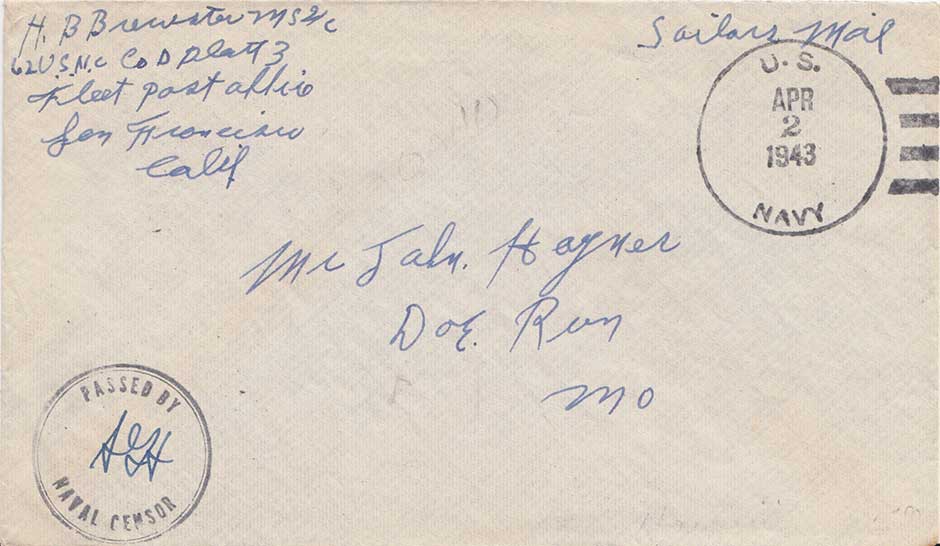 H. B Brewster MS2/c
62 U.S.N.C Co D Platt 3
Fleet Post Office
San Francisco
Calif
Sailors Mail
U. S.
APR
2
1943
NAVY
Mr John. Hayner
Doe. Run
Mo
PASSED BY
AGH
NAVAL CENSOR